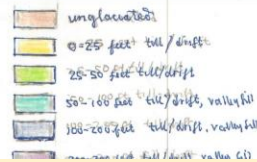 unglaciated
0-25 feet till/drift
25-50 till/drift
50-100 feet till/drift, valley fill
100-200 feet till/drift, valley fill
till/drift valley fill